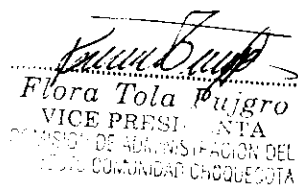 Flora Tola Pujgro
VICE PRESI NTA
COMISION DE ADMINISTRACION DEL
COMUNIDAD CHOQUECOTA